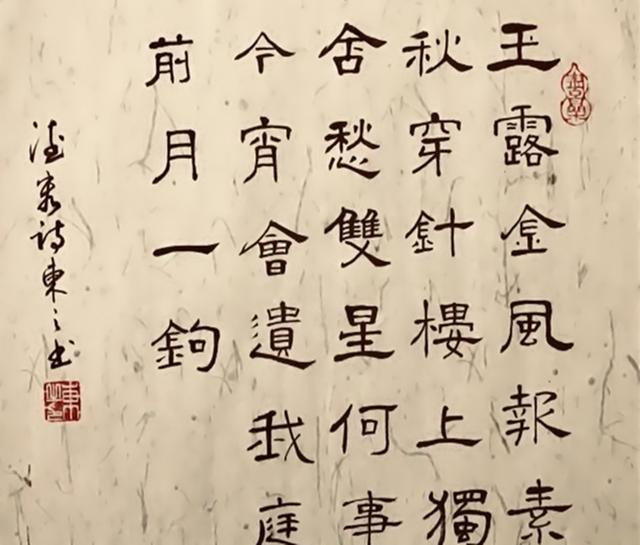 玉露金風報素
秋穿針樓上獨
含愁雙星何事
今宵會遺我庭
前月一鉤
德容詩東之书